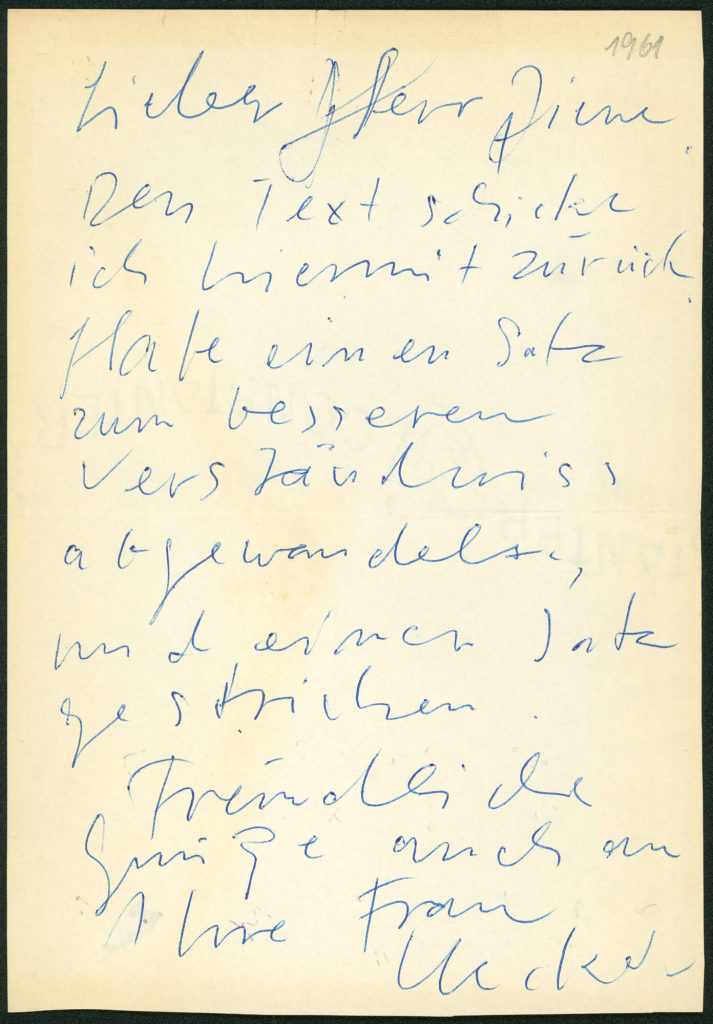 1961
Lieber Herr
Den Text schicke
ich hiermit zurück.
Habe einen Satz
zum besseren
Verständniss
abgewandelt,
und einen Satz
gestrichen.
Freundliche
Grüße auch an
Ihre Frau
Uecker